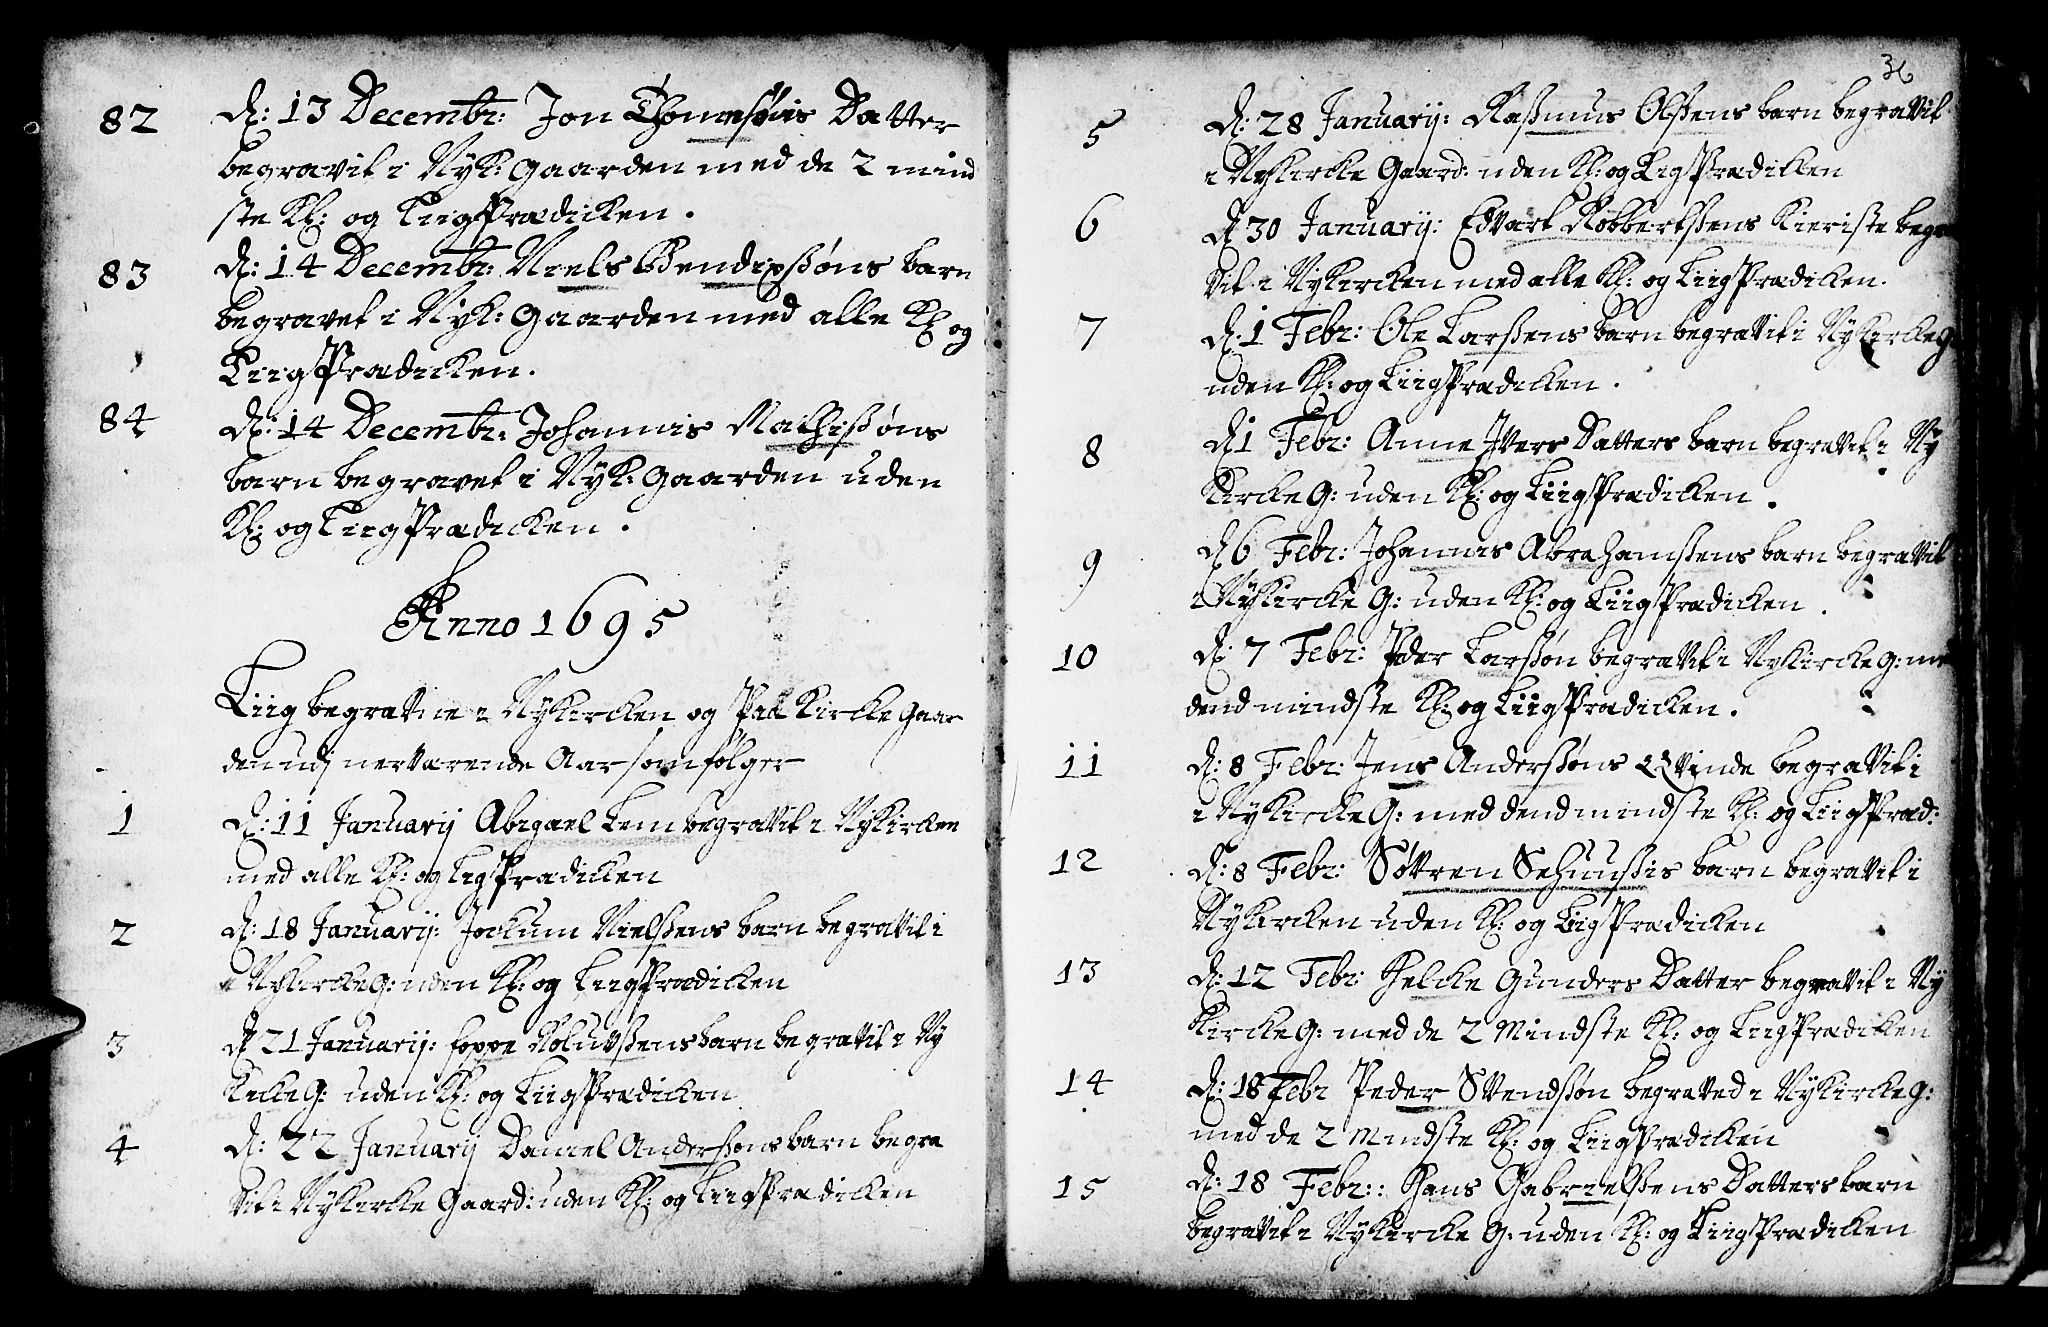 82 D: 13 Decembr: Jon Thomesøns Datter
begravit i Nyk: gaarden med de 2 mind
ste Kl: og Liigprædicken.
83 D: 14 Decembr: Niels Bendixsøns barn
begravet i Nyk: gaarden med alle Kl: og
Liigprædicken.
84 D: 14 Decembr: Johannis Mathisøns
barn begravet i Nyk: gaarden uden
Kl: og Liigprædicken.
Anno 1695
Liig begravne i Nykircken og paa Kircke gaar
den udj nerværende Aar som følger
1 D: 11 Januarij Abigael Lem begravit i Nykircken
med alle Kl: og Ligprædicken
2 D: 18 Januarij: Jockum Nielsens barn begravit i
i Nykircke G: uden Kl: og Liigprædicken
3 D 21 Januarij: foppe Roluvsens barn begravit i Ny
Kircke G: uden Kl: og Liigprædicken
4 D: 22 Januarij Daniel Andersøns barn begra
vit i Nykircke Gaard: uden Kl: og Liigprædicken
36
5 D: 28 Januarij: Rasmus Olsens barn begravit
i Nykircke Gaard: uden Kl: og Ligprædicken
6 D 30 Januarij: Edvart Robbertsens Kieriste begra
vit i Nykircken med alle Kl: og Liigprædicken.
7 D: 1 Febr: Ole Larsens barn begravit i Nykircke G
uden Kl: og Liigprædicken.
8 D 1 Febr: Anne Ivers Datters barn begravit i Ny
Kircke G: uden Kl: og Liigprædicken.
9 D 6 Febr: Johannis Abrahamsens barn begravit
i Nykircke G: uden Kl: og Liigprædicken.
10 D: 7 Febr: Peder Larsøn begravit i Nykircke G: me
dend mindste Kl: og Liigprædicken.
11 D: 8 Febr: Jens Andersøns Qvinde begravit i
i Nykircke G: med dend mindste Kl: og Liigpræd:
12 D: 8 Febr: Søvren Sehuusis barn begravit i
Nykircken uden Kl: og Liigprædicken
13 D: 12 Febr: Helcke Gunders Datter begravit i Ny
Kircke G: med de 2 Mindste Kl: og Liigprædicken
14 D: 18 Febr Peder Svendsøn begraved i Nykircke G:
med de 2 Mindste Kl: og Liigprædicken
15 D: 18 Febr:: Hans Gabrielsens Datters barn
begravit i Nykircke G: uden Kl: og Liigprædicken